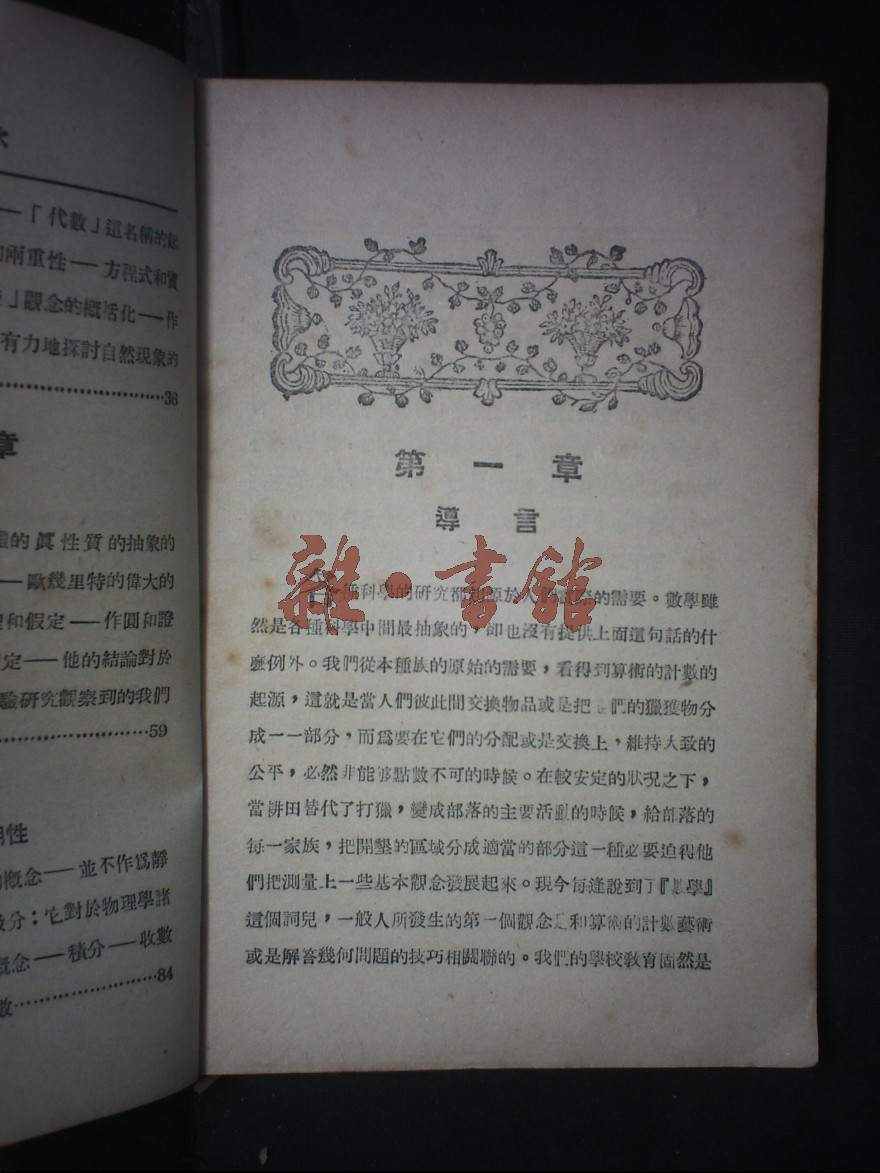 「代數」這名稱的起
兩重性——方程式和實
」觀念的概括化——作
有力地探討自然現象的
36
章
的眞性質的抽象的
——歐幾里特的偉大的
和假定——作圓和證
定——他的結論對於
驗研究觀察到的我們
59
用性
概念——並不作爲靜
分：它對於物理學諸
概念——積分——收斂
84
第一章
導言
種科學的研究都起原於人們實際的需要。數學雖
然是各種科學中間最抽象的，卻也沒有提供上面這句話的什
麽例外。我們從本種族的原始的需要，看得到算術的計數的
起源，這就是當人們彼此間交換物品或是把們的獵獲物分
成一一部分，而爲要在它們的分配或是交換上，維持大致的
公平，必然非能够點數不可的時候。在較安定的狀况之下，
當耕田替代了打獵，變成部落的主要活動的時候，給部落的
每一家族，把開墾的區域分成適當的部分這一種必要迫得他
們把測量上一些基本觀念發展起來。現今每逢說到了『數學』
這個詞兒，一般人所發生的第一個觀念是和算術的計數藝術
或是解答幾何問題的技巧相關聯的。我們的學校敎育固然是
雜·書館